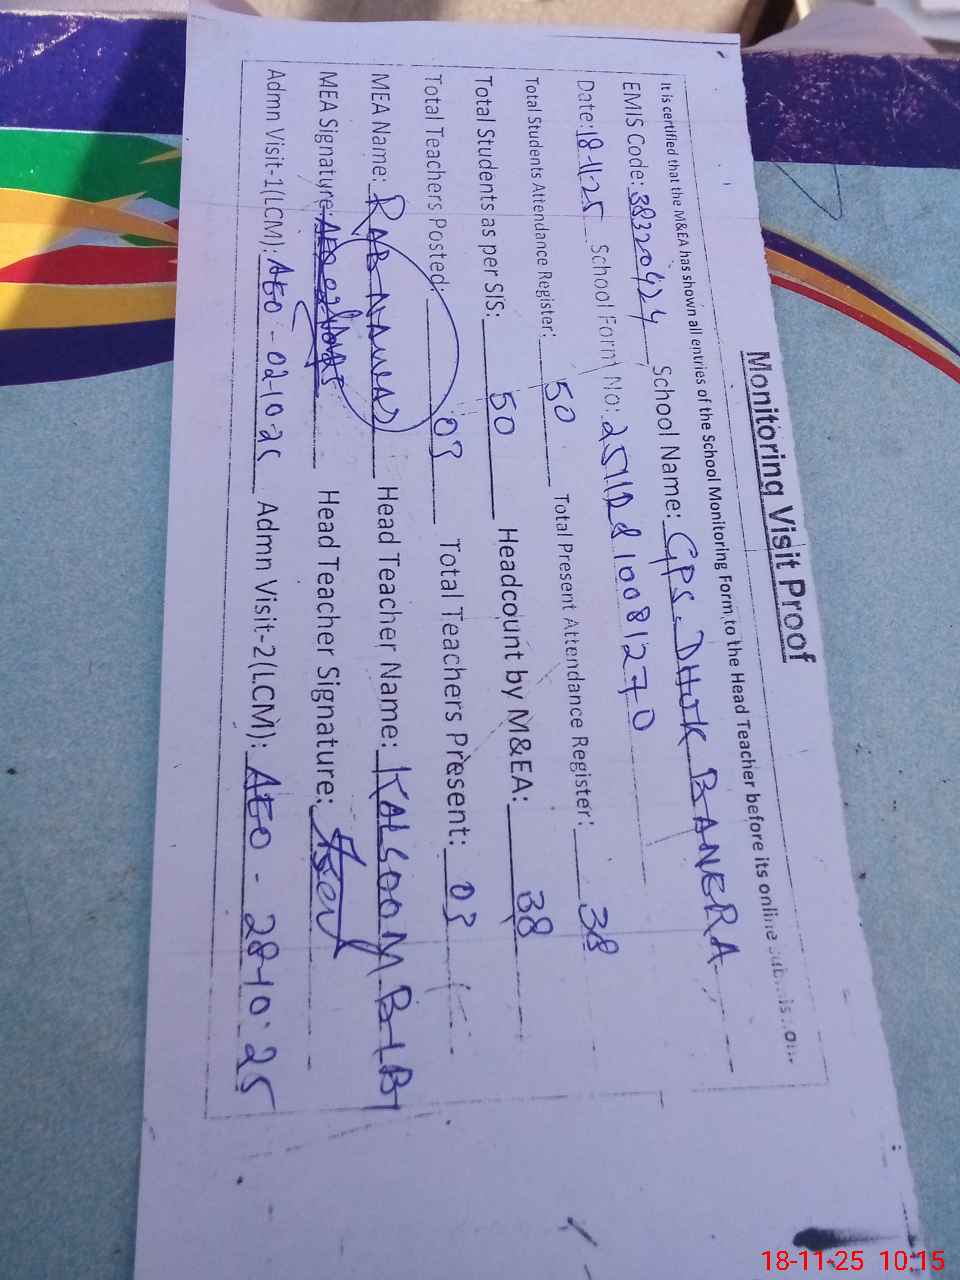 Monitoring Visit Proof
It is certified that the M&EA has shown all entries of the School Monitoring Form to the Head Teacher before its online submission.
EMIS Code: 38320424 School Name: GPS. DHOK BANERA
Date: 18-11-25 School Form No: 251121081270
Total Students Attendance Register: 50 Total Present Attendance Register: 38
Total Students as per SIS: 50 Headcount by M&EA: 38
Total Teachers Posted: 03 Total Teachers Present: 03
MEA Name: RAB NAWAZ Head Teacher Name: KALSOOM BIBI
MEA Signature: Head Teacher Signature:
Admn Visit-1(LCM): AEO - 02-10-25 Admn Visit-2(LCM): AEO - 28-10-25
18-11-25 10:15